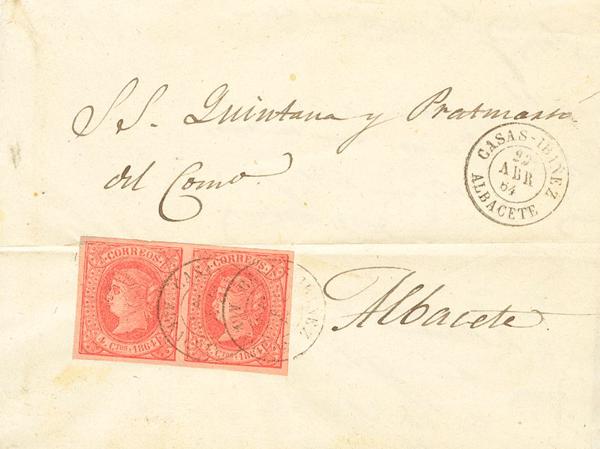 S.S. Quintana y Pratmarsó
del Comº
CASAS-IBAÑEZ
22
ABR
64
ALBACETE
CORREOS CORREOS
4 Ctos 1864 4 Ctos 1864
Albacete.